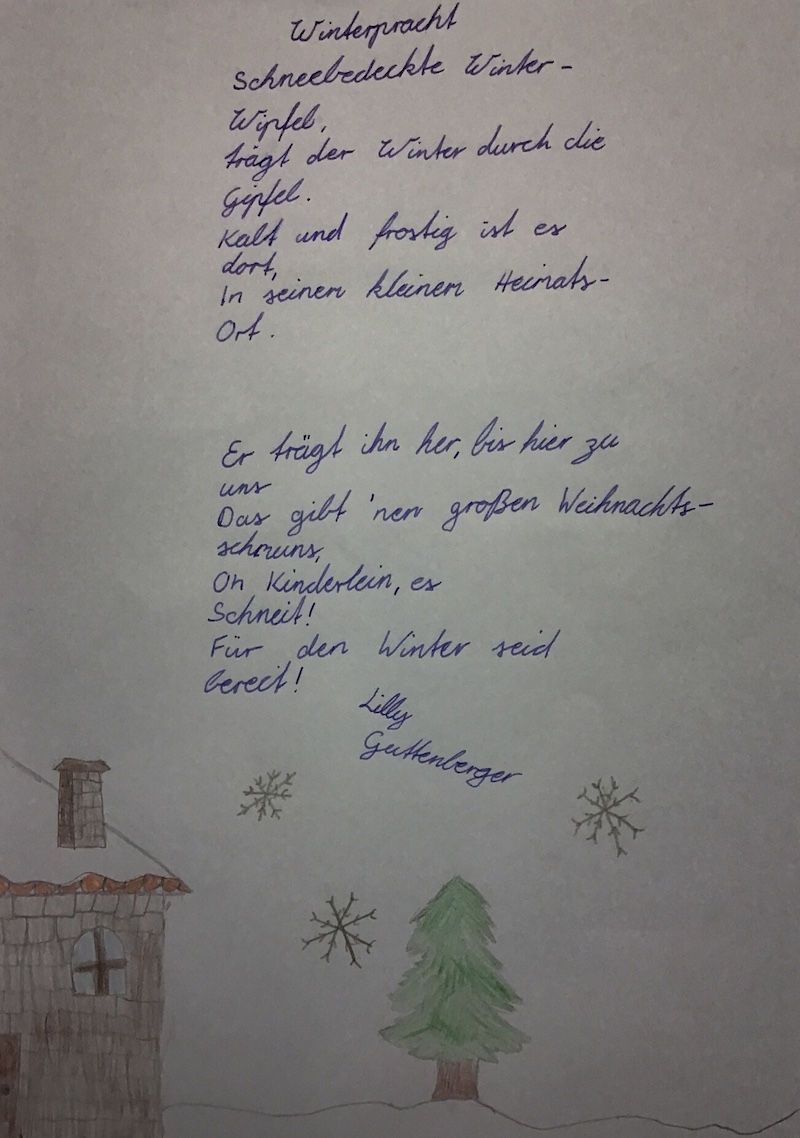 Winterpracht
Schneebedeckte Winter-
Wipfel,
trägt der Winter durch die
Gipfel.
Kalt und frostig ist es
dort,
In seinem kleinem Heimats-
Ort.
Er trägt ihn her, bis hier zu
uns
Das gibt 'nen großen Weihnachts-
schmuns,
Oh Kinderlein, es
Schneit!
Für den Winter seid
bereit!
Lilly
Guttenberger